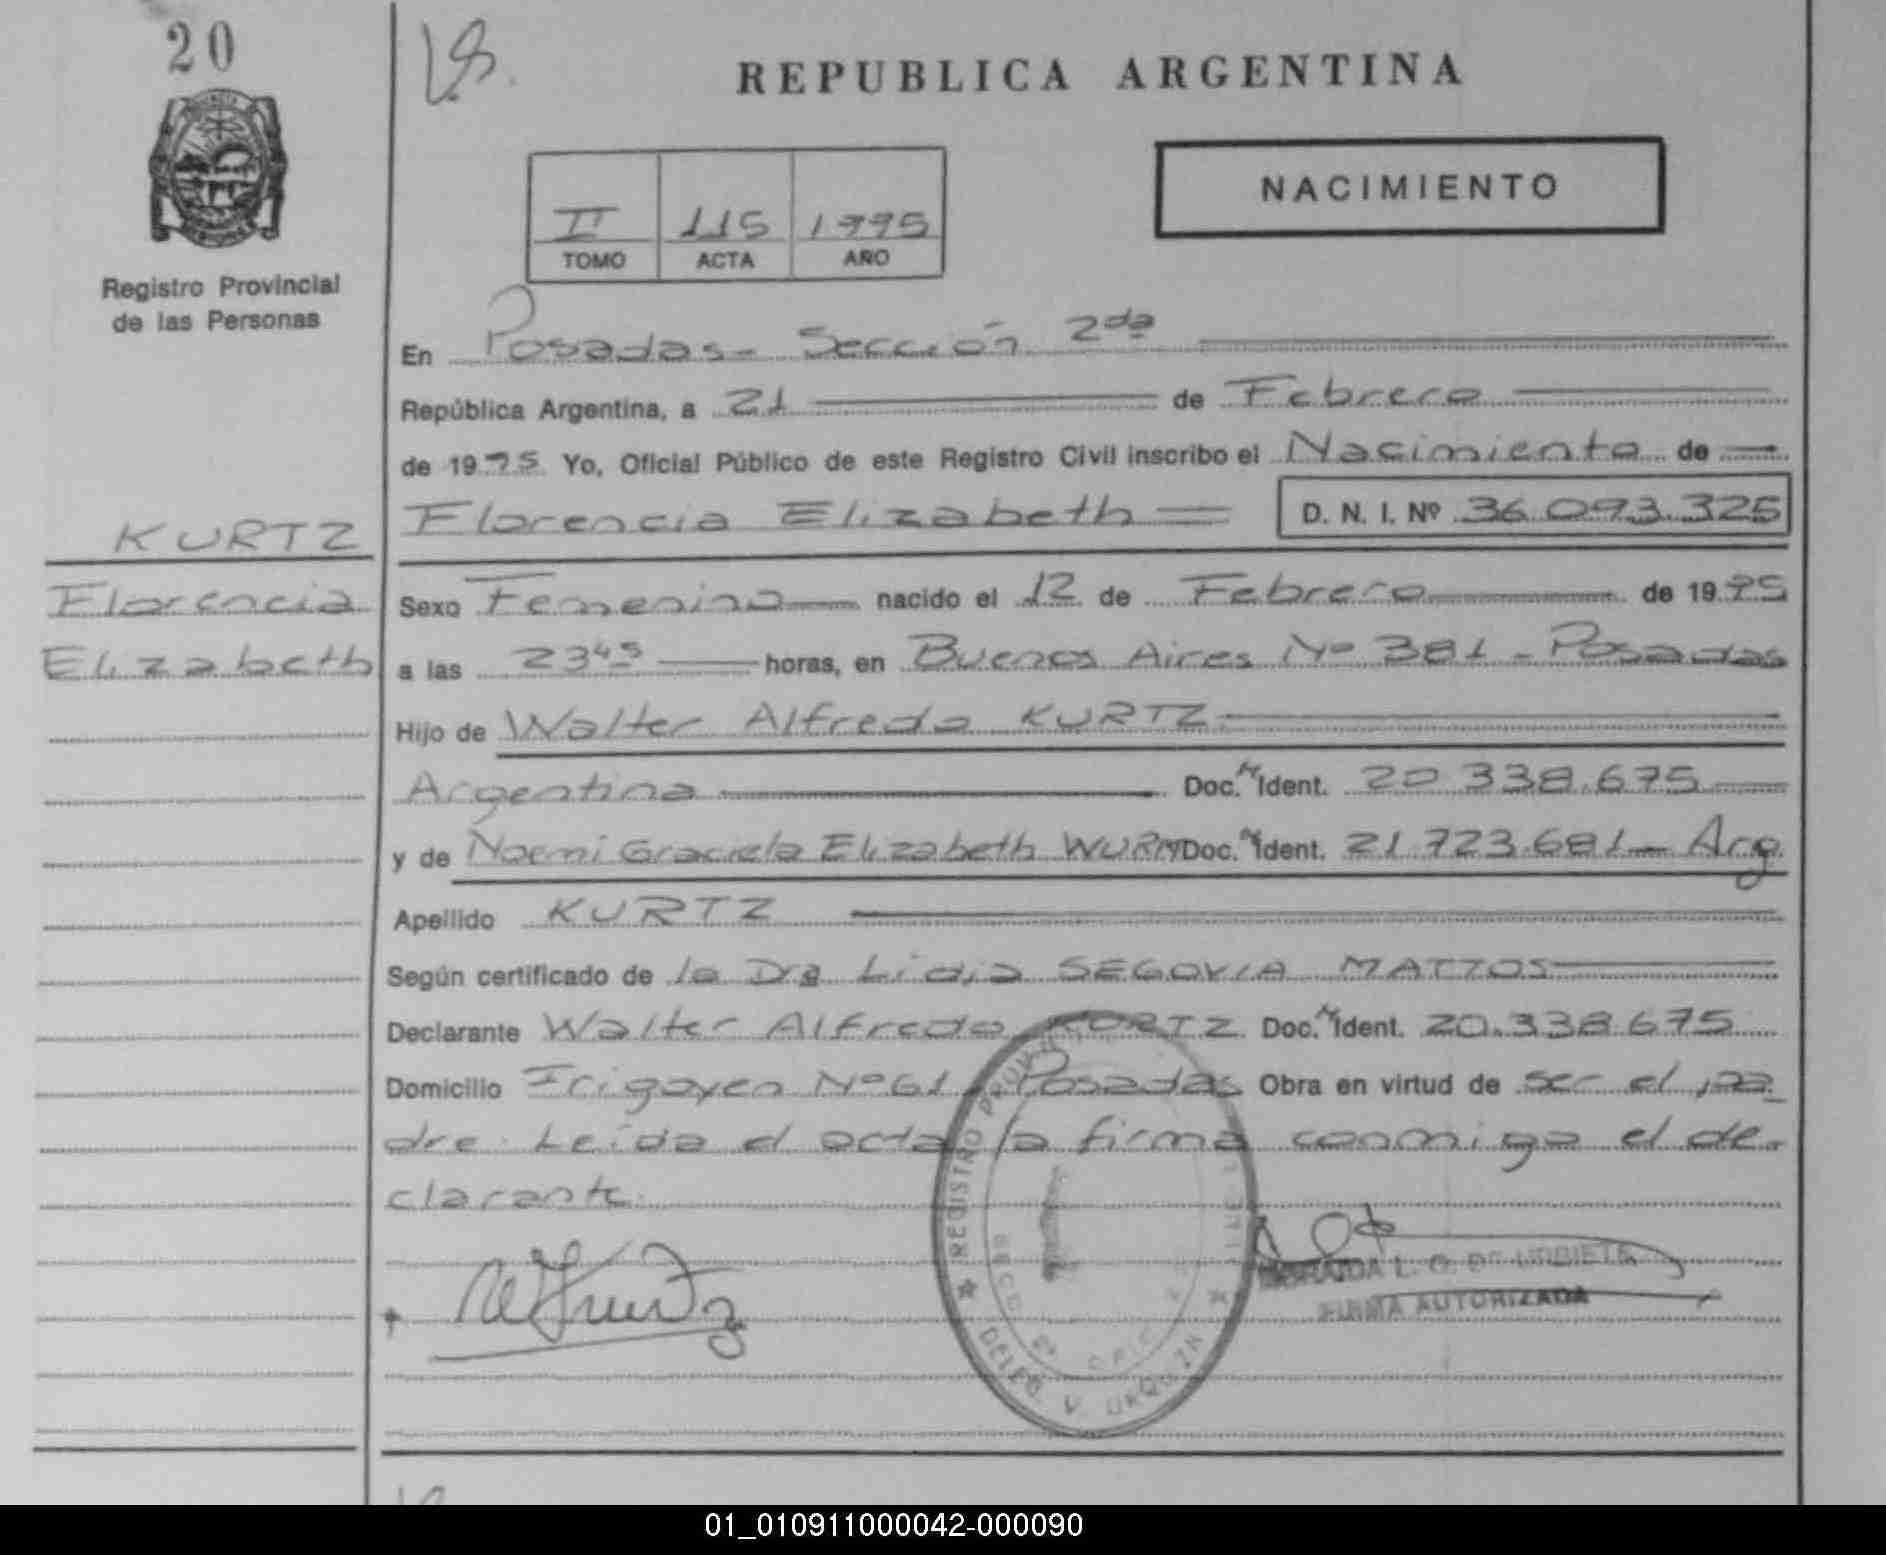 20
REPUBLICA ARGENTINA
NACIMIENTO
II 115 1995
TOMO ACTA AÑO
Registro Provincial
de las Personas
En Posadas - Sección 2da
República Argentina, a 21 de Febrero
de 1995 Yo, Oficial Público de este Registro Civil inscribo el Nacimiento de
Florencia Elizabeth D. N. I. Nº 36.093.325
KURTZ
Florencia
Elizabeth
Sexo Femenino nacido el 12 de Febrero de 1995
a las 23 45 horas, en Buenos Aires Nº 381 - Posadas
Hijo de Walter Alfredo KURTZ
Argentina Doc. N Ident. 20.338.675
y de Noemi Graciela Elizabeth WURM Doc. N Ident. 21.723.681 - Arg
Apellido KURTZ
Según certificado de la Dra Lidia SEGOVIA MATTOS
Declarante Walter Alfredo KURTZ Doc. N Ident. 20.338.675
Domicilio Irigoyen Nº 61 - Posadas Obra en virtud de ser el pa
dre. Leída el acta la firma conmigo el de-
clarante.
REGISTRO
DELEG. V. URQUIZA
L. O. DE
FIRMA AUTORIZADA
01_010911000042-000090